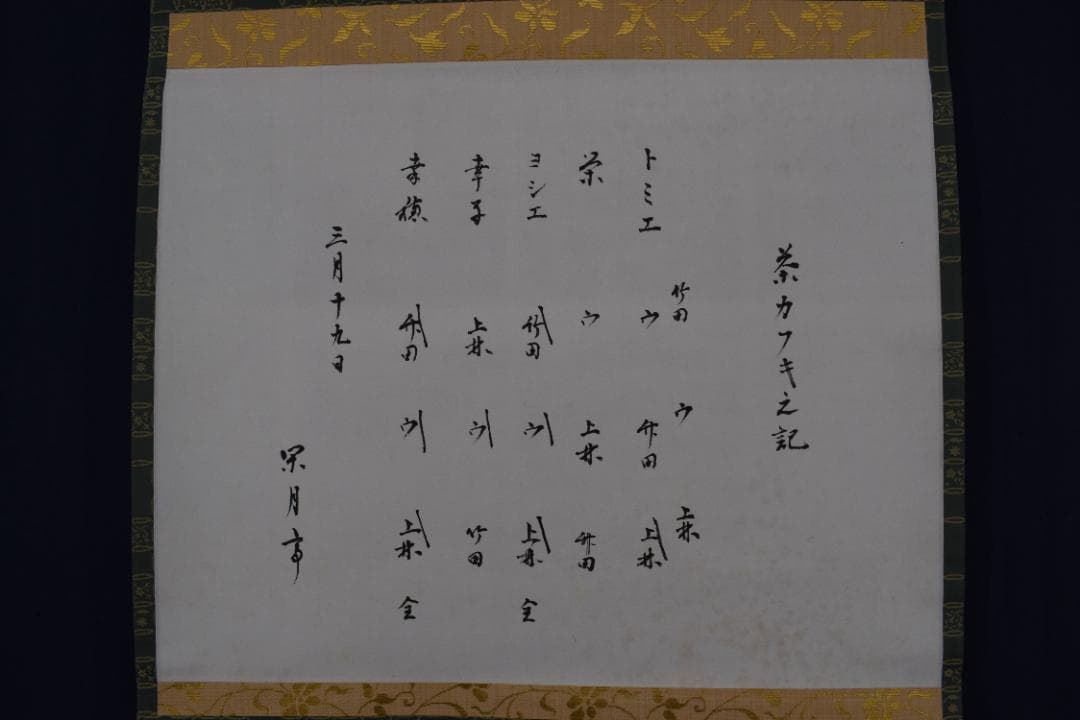 茶カフキ之記
竹田 ウ 上林
トミエ ウ 竹田 上林
栄 ウ 上林 竹田
ヨシエ 竹田 ウ 上林 全
幸子 上林 ウ 竹田
幸穂 竹田 ウ 上林 全
三月十九日
月亭